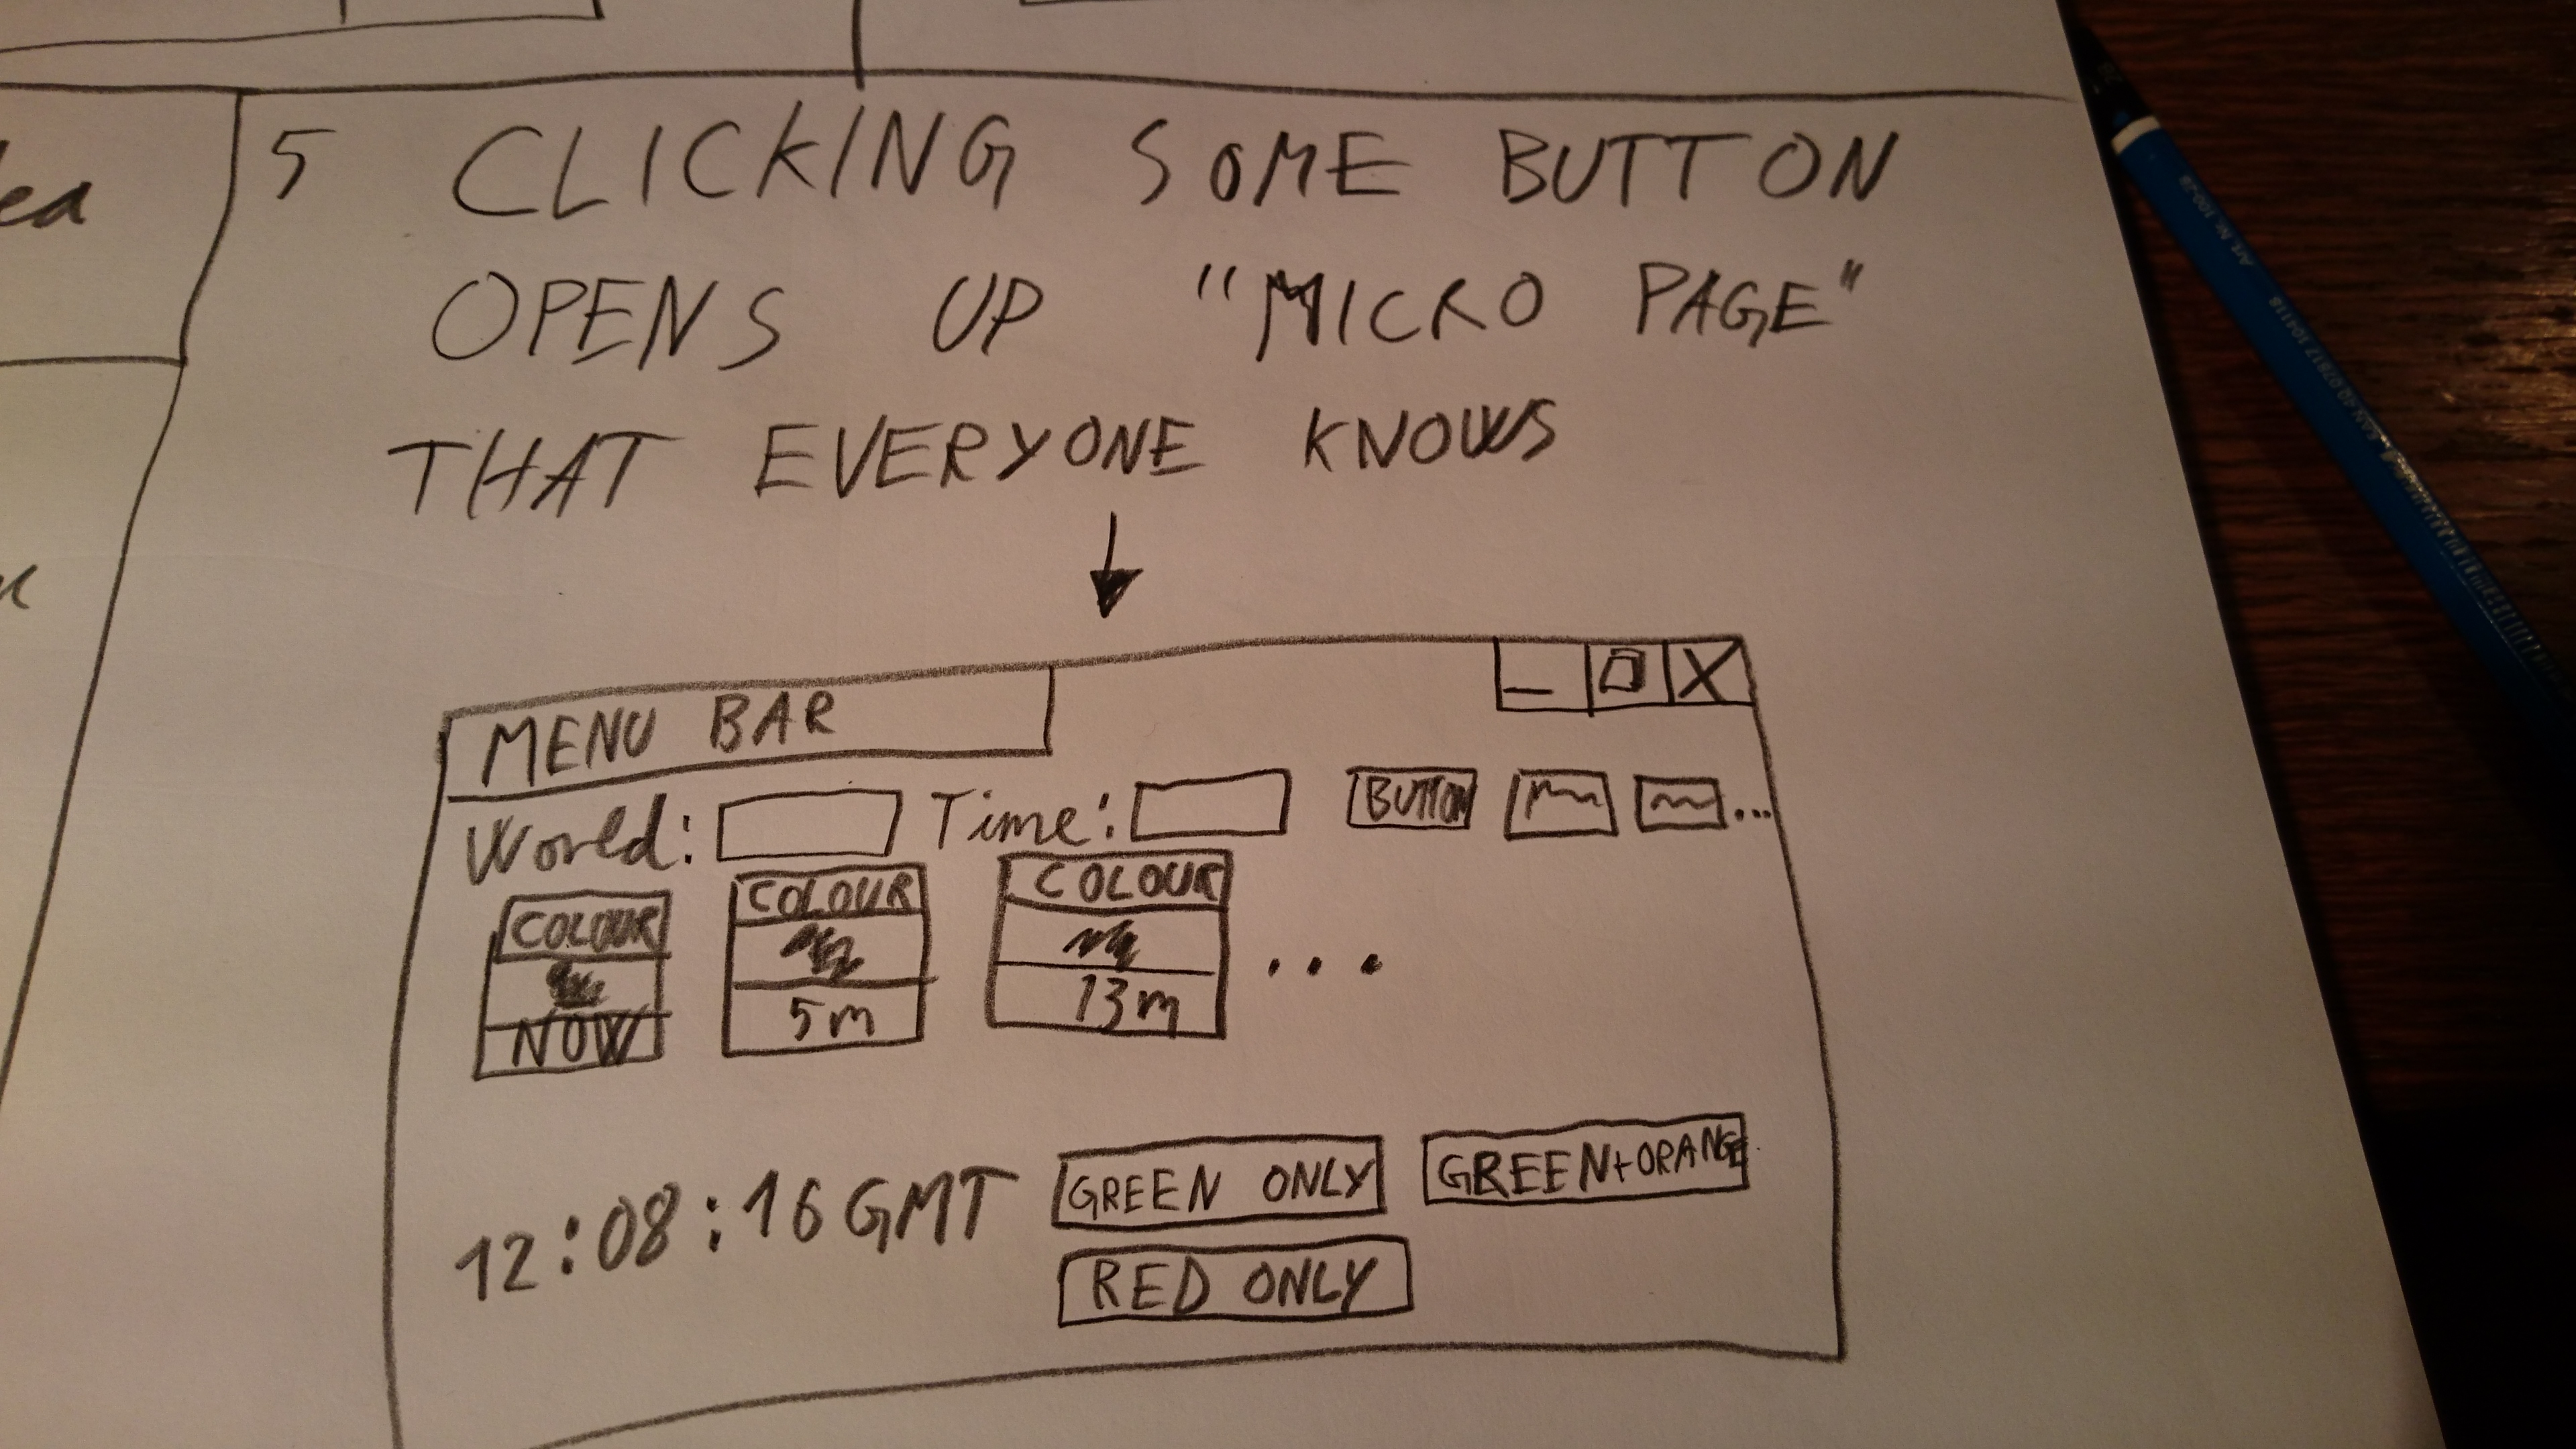 5 CLICKING SOME BUTTON
OPENS UP "MICRO PAGE"
THAT EVERYONE KNOWS
MENU BAR
_ X
World: Time: BUTTON ...
COLOUR COLOUR COLOUR
...
NOW 5m 13m
12:08:16 GMT GREEN ONLY GREEN+ORANGE
RED ONLY